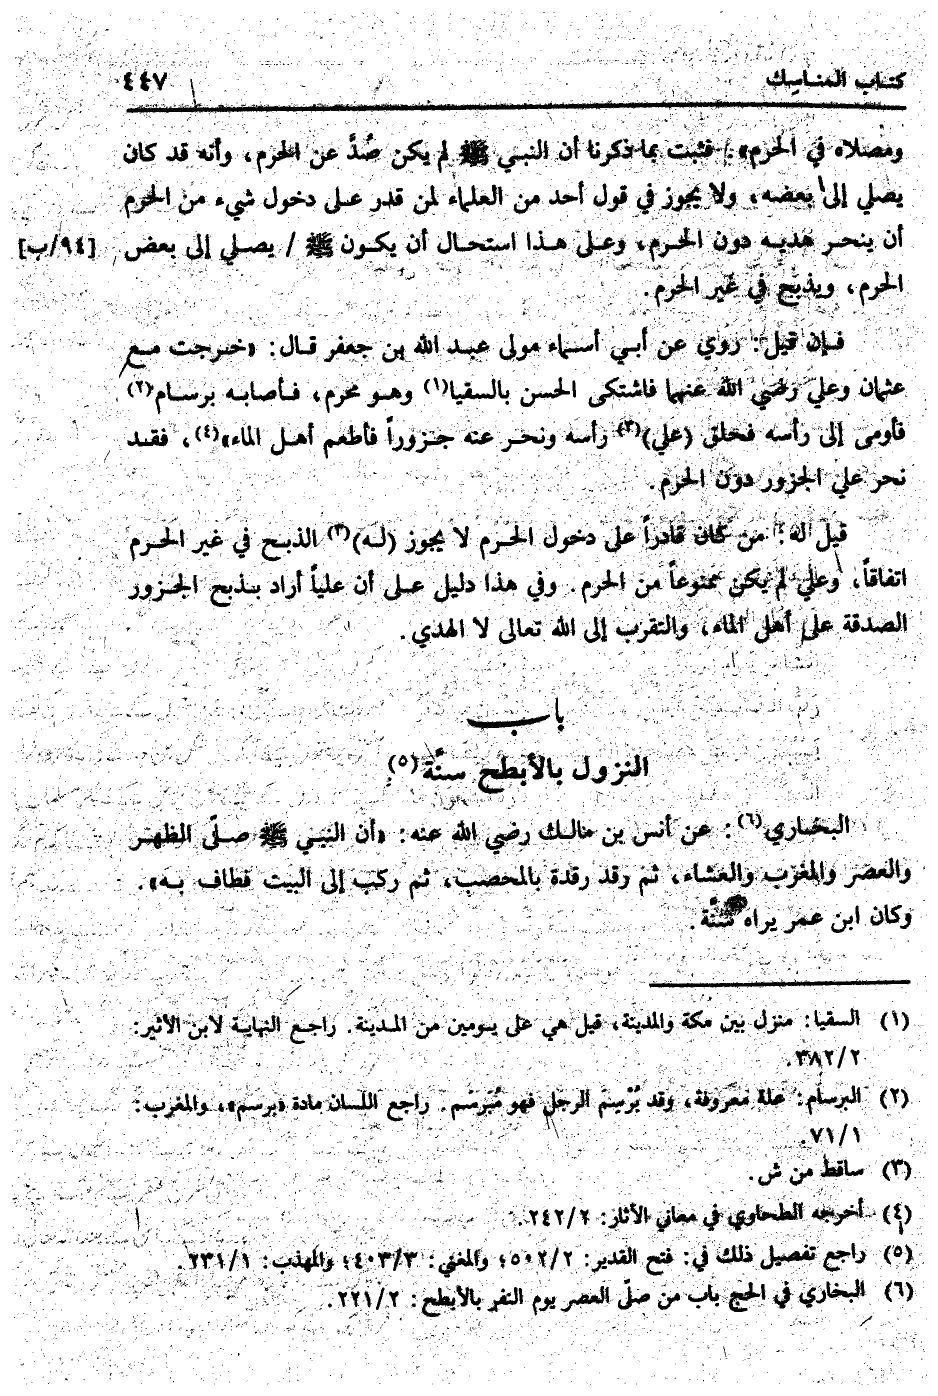 كتاب المناسك ٤٤٧
ومصلاه في الحرم». فثبت بما ذكرنا أن النبي ﷺ لم يكن صُدَّ عن الحرم، وأنه قد كان
يصلي إلى بعضه، ولا يجوز في قول أحد من العلماء لمن قدر على دخول شيء من الحرم
أن ينحر هديه دون الحرم، وعلى هذا استحال أن يكون ﷺ / يصلي إلى بعض [٩٤/ب]
الحرم، ويذبح في غير الحرم.
فإن قيل: روي عن أبي أسماء مولى عبد الله بن جعفر قال: «خرجت مع
عثمان وعلي رضي الله عنهما فاشتكى الحسن بالسقيا(١) وهو محرم، فأصابه برسام(٢)
فأومى إلى رأسه فحلق (علي)(٣) رأسه ونحر عنه جزوراً فأطعم أهل الماء»(٤)، فقد
نحر علي الجزور دون الحرم.
قيل له: من كان قادراً على دخول الحرم لا يجوز (له)(٣) الذبح في غير الحرم
اتفاقاً، وعلي لم يكن ممنوعاً من الحرم. وفي هذا دليل على أن علياً أراد بذبح الجزور
الصدقة على أهل الماء، والتقرب إلى الله تعالى لا الهدي.
باب
النزول بالأبطح سنَّة(٥)
البخاري(٦): عن أنس بن مالك رضي الله عنه: «أن النبي ﷺ صلّى الظهر
والعصر والمغرب والعشاء، ثم رقد رقدة بالمحصب، ثم ركب إلى البيت فطاف به».
وكان ابن عمر يراه سُنَّة.
(١) السقيا: منزل بين مكة والمدينة، قيل هي على يومين من المدينة. راجع النهاية لابن الأثير:
٣٨٢/٢.
(٢) البرسام: علة معروفة، وقد بُرْسِمَ الرجل فهو مُبَرسَم. راجع اللسان مادة «برسم»، والمغرب:
٧١/١.
(٣) ساقط من ش.
(٤) أخرجه الطحاوي في معاني الآثار: ٢٤٢/٢.
(٥) راجع تفصيل ذلك في: فتح القدير: ٥٠٢/٢؛ والمغني: ٤٠٣/٣؛ والمهذب: ٢٣١/١.
(٦) البخاري في الحج باب من صلّى العصر يوم النفر بالأبطح: ٢٢١/٢.